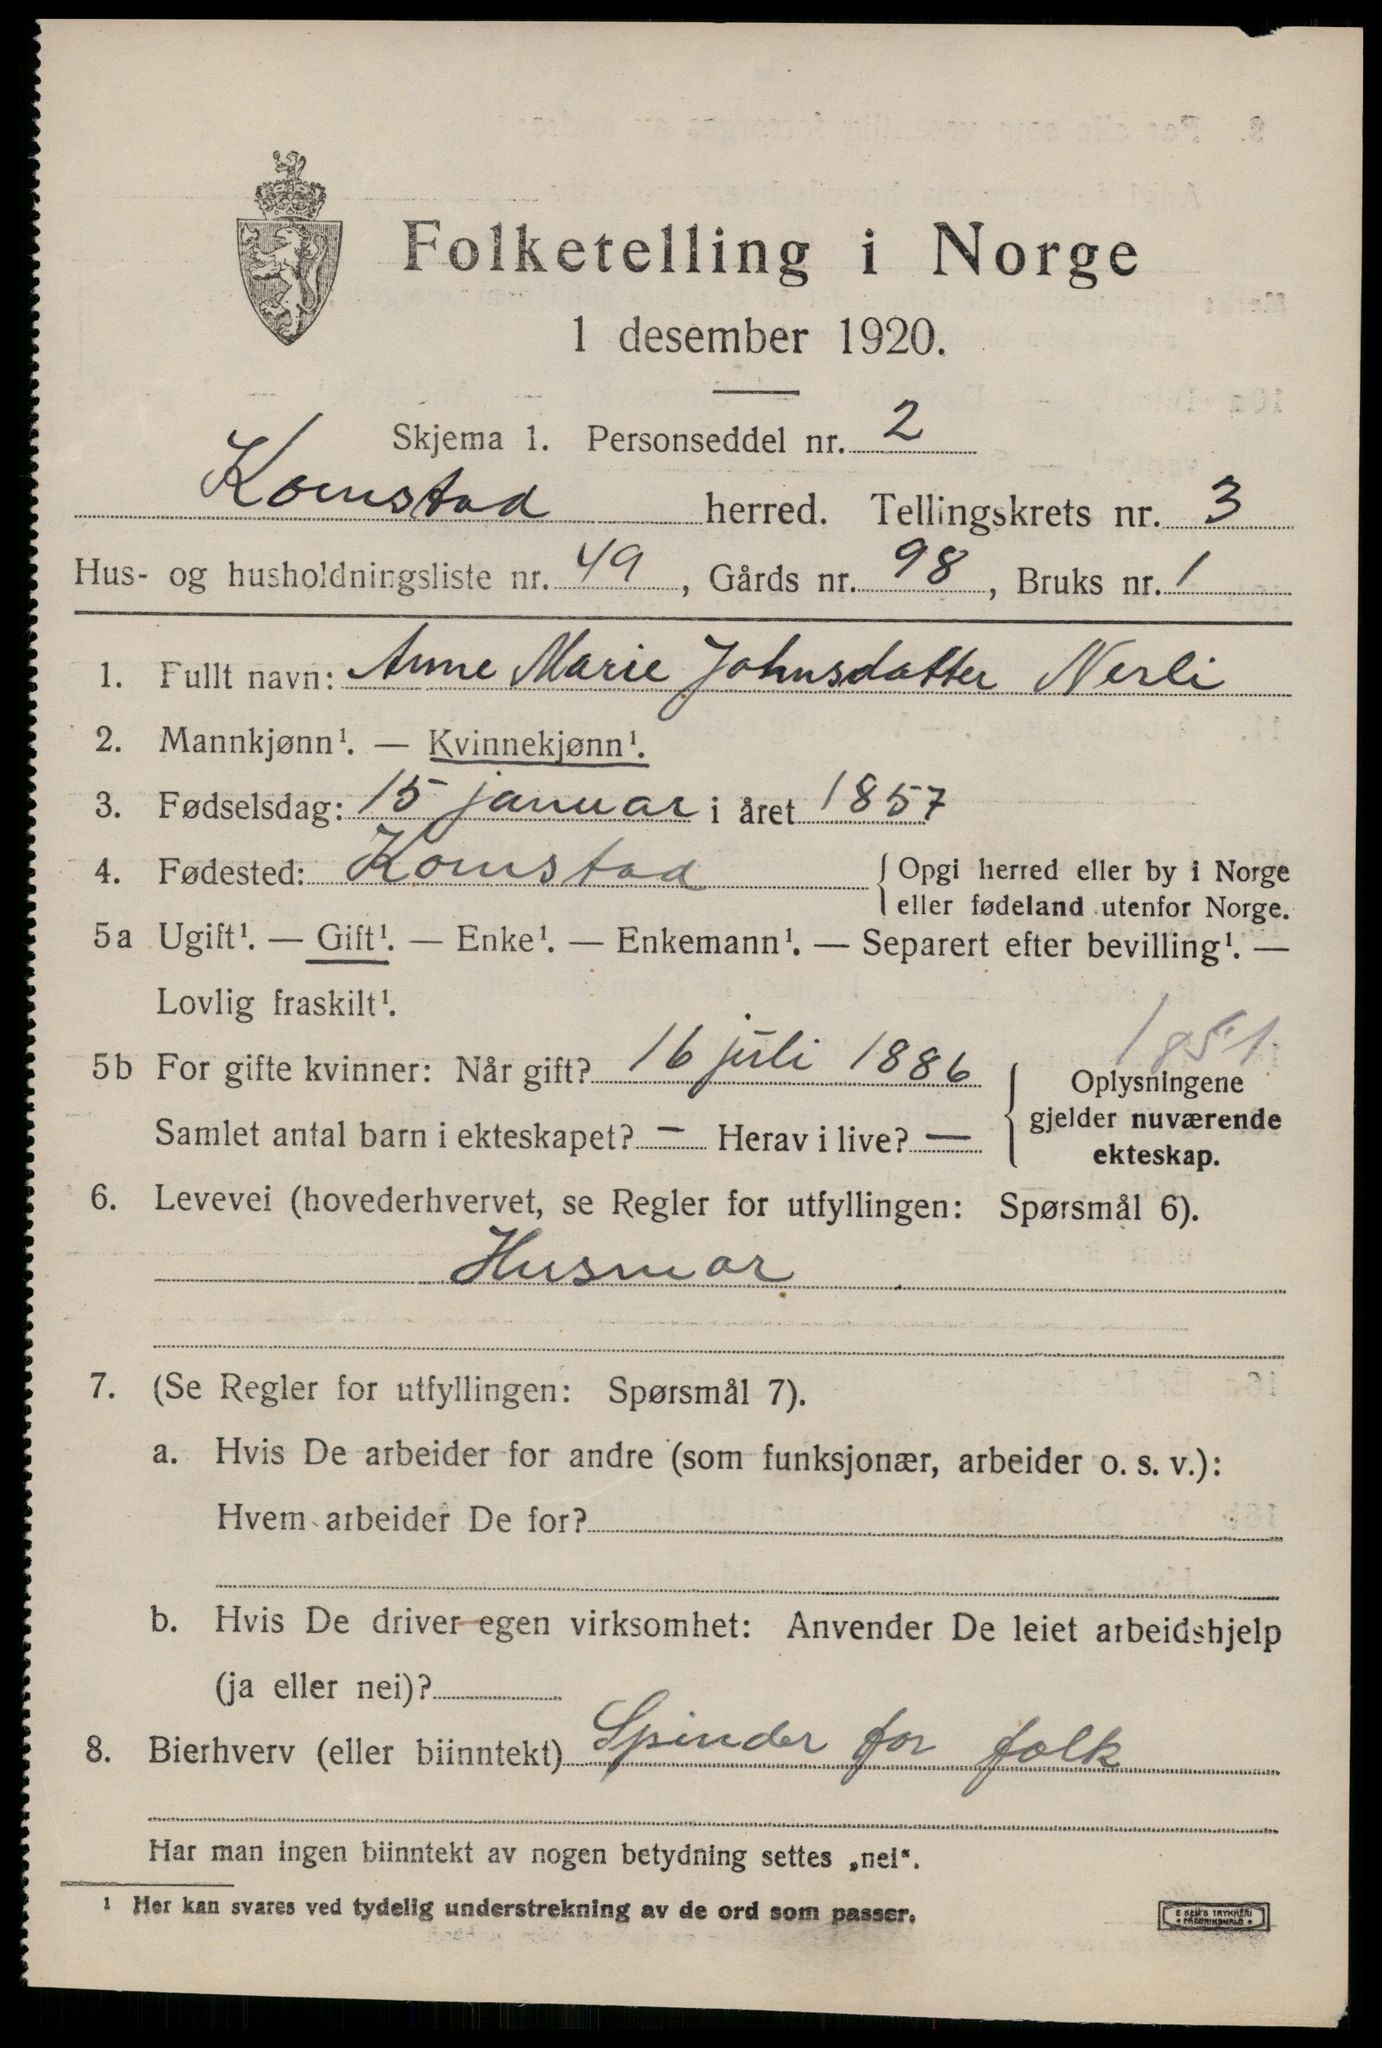 Folketelling i Norge
1 desember 1920.
Skjema 1. Personseddel nr. 2
Kornstad herred. Tellingskrets nr. 3
Hus- og husholdningsliste nr. 49, Gårds nr. 98, Bruks nr. 1
1. Fullt navn: Anne Marie Johnsdatter Nerli
2. Mannkjønn¹. — Kvinnekjønn¹.
3. Fødselsdag: 15 januar i året 1857
4. Fødested: Kornstad { Opgi herred eller by i Norge
eller fødeland utenfor Norge.
5a Ugift¹. — Gift¹. — Enke¹. — Enkemann¹. — Separert efter bevilling¹. —
Lovlig fraskilt¹.
1851
5b For gifte kvinner: Når gift? 16 juli 1886
Samlet antal barn i ekteskapet? — Herav i live? —
{ Oplysningene
gjelder nuværende
ekteskap.
6. Levevei (hovederhvervet, se Regler for utfyllingen: Spørsmål 6).
Husmor
7. (Se Regler for utfyllingen: Spørsmål 7).
a. Hvis De arbeider for andre (som funksjonær, arbeider o. s. v.):
Hvem arbeider De for?
b. Hvis De driver egen virksomhet: Anvender De leiet arbeidshjelp
(ja eller nei)?
8. Bierhverv (eller biinntekt) Spinder for folk
Har man ingen biinntekt av nogen betydning settes „nei“.
¹ Her kan svares ved tydelig understrekning av de ord som passer.
E SEM'S TRYKKERI
FREDRIKSHALD